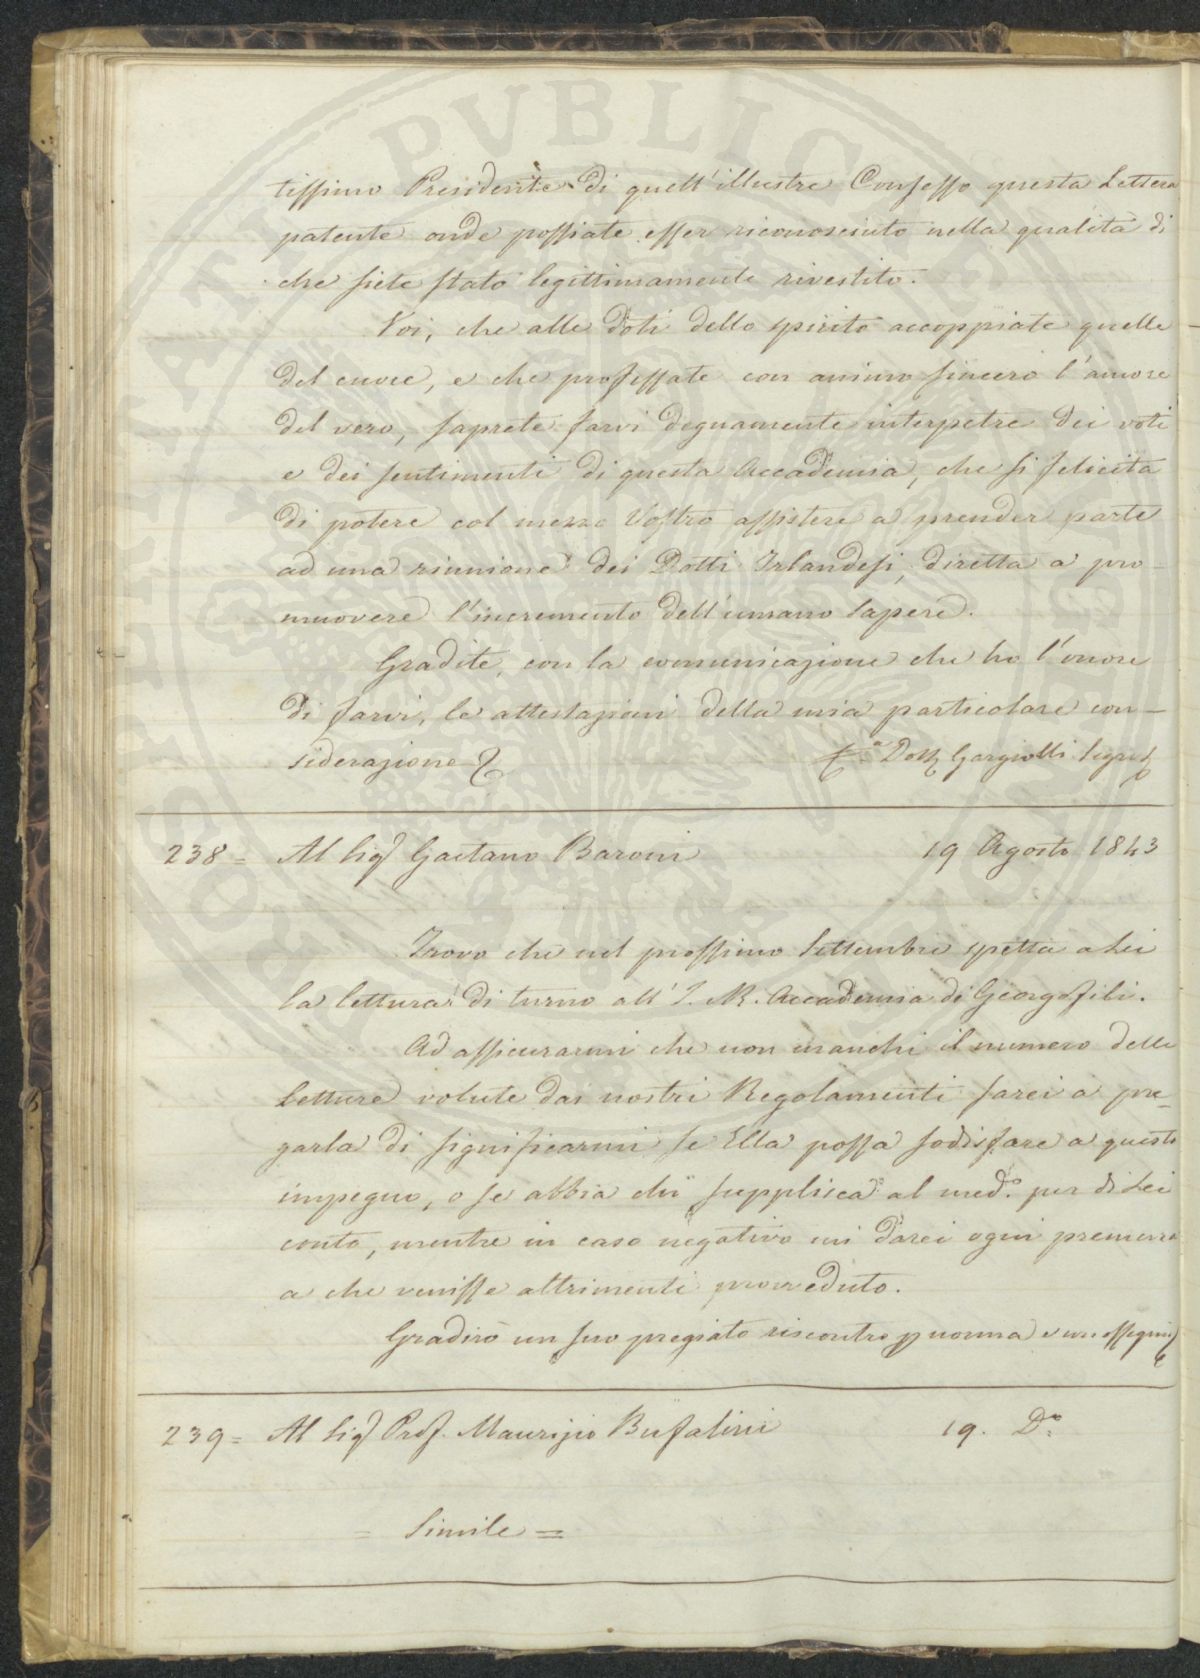 tissimo Presidente di quell'illustre Consesso questa Lettera
patente onde possiate esser riconosciuto nella qualità di
che siete stato legittimamente rivestito.
Voi, che alle doti dello spirito accoppiate quelle
del cuore, e che professate con animo sincero l'amore
del vero, saprete farvi degnamente interpetre dei voti
e dei sentimenti di questa Accademia, che si felicita
di potere col mezzo Vostro assistere a prender parte
ad una riunione dei Dotti Irlandesi, diretta a pro-
muovere l'incremento dell'umano sapere.
Gradite, con la comunicazione che ho l'onore
di farvi, le attestazioni della mia particolare con-
siderazione
Dott Gargiolli Segret
238 = Al Sig Gaetano Baroni 19 Agosto 1843
Trovo che nel prossimo Settembre spetta a Lei
la lettura di turno all'I. R. Accademia di Georgofili.
Ad assicurarmi che non manchi il numero delle
Letture volute dai nostri Regolamenti sarei a pre-
garla di significarmi se Ella possa sodisfare a questo
impegno, o se abbia chi supplisca al med.o per di Lei
conto, mentre in caso negativo mi darei ogni premura
a che venisse altrimenti provveduto.
Gradirò un suo pregiato riscontro p norma e con ossequio
239 = Al Sig Prof. Maurizio Bufalini 19. D.o
= Simile =
PVBLICE